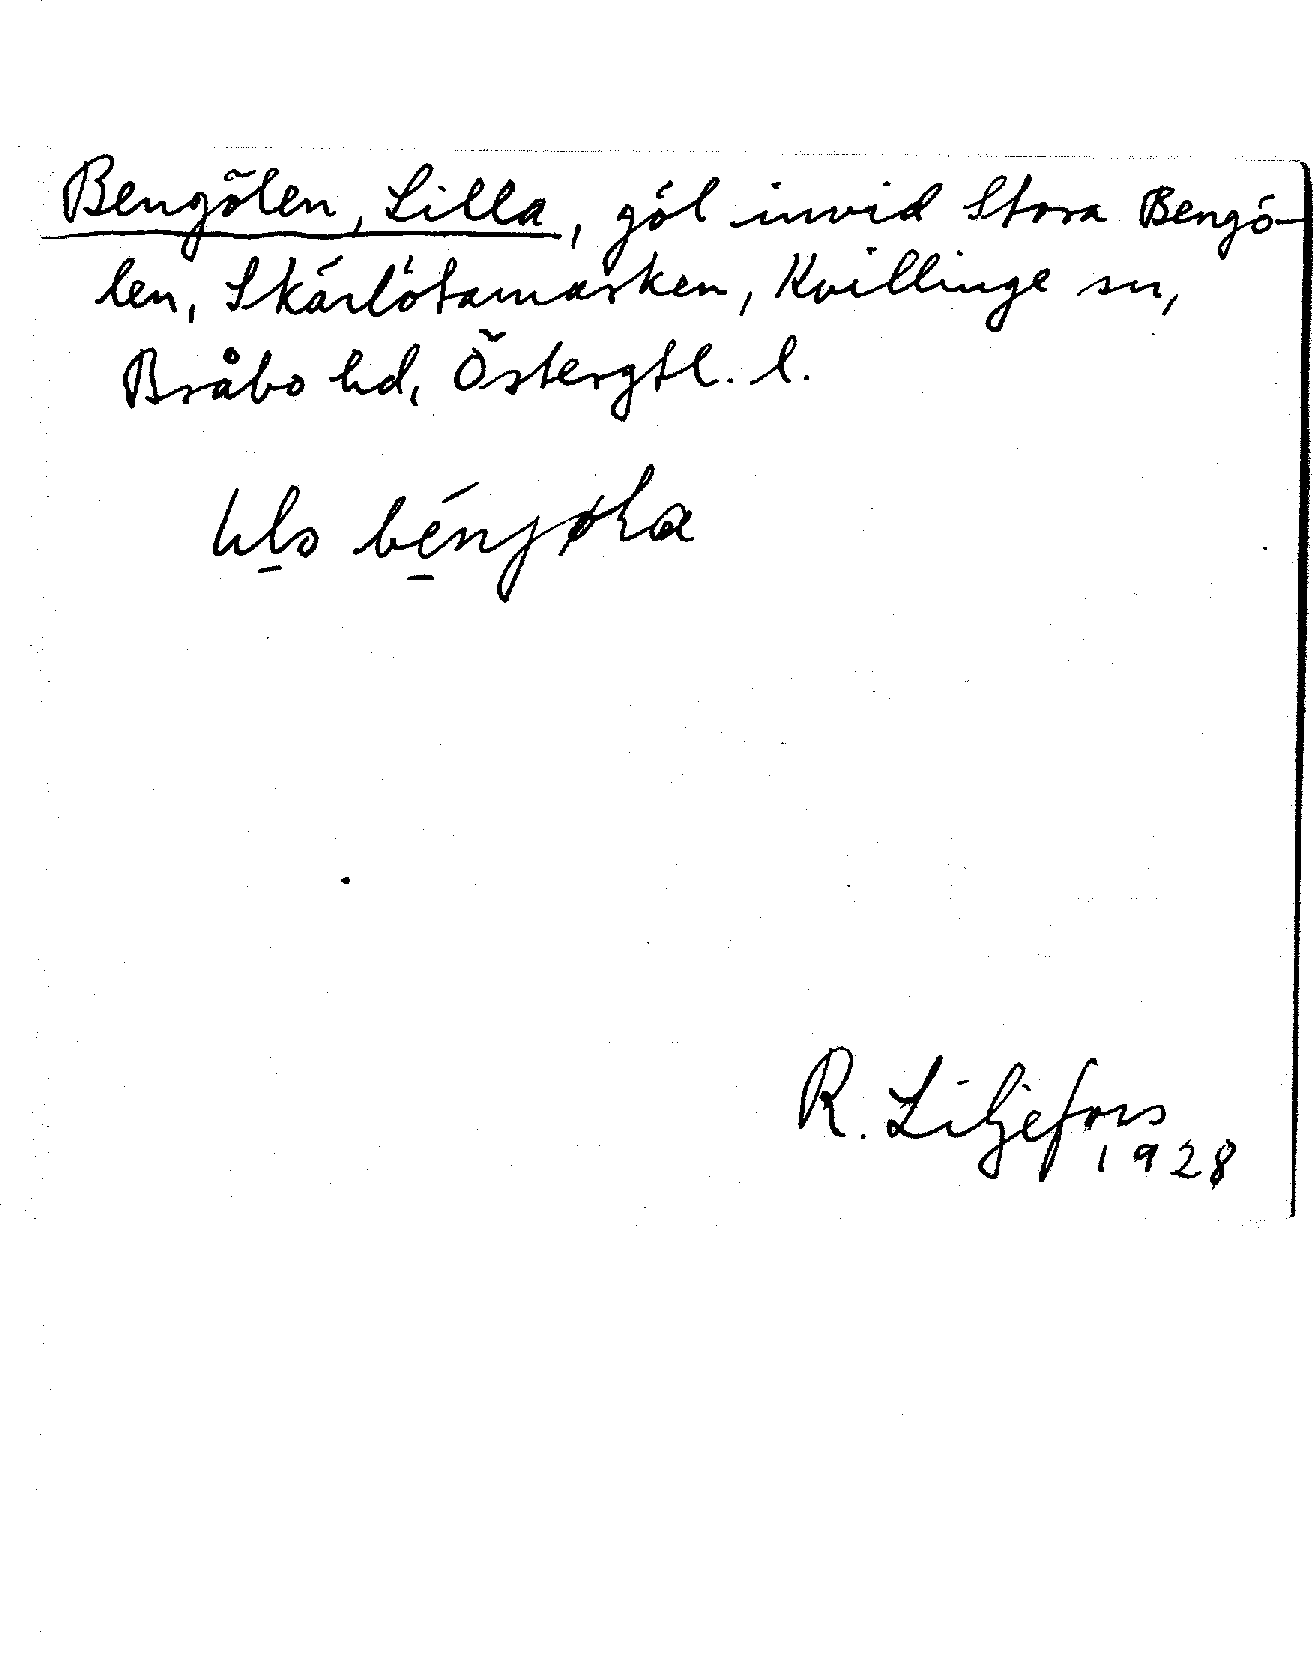 Bengölen, Lilla, göl invid Stora Bengö-
len, Skärlötamarken, Kvillinge sn,
Bråbo hd, Östergtl. l.
R. Liljefors
1928